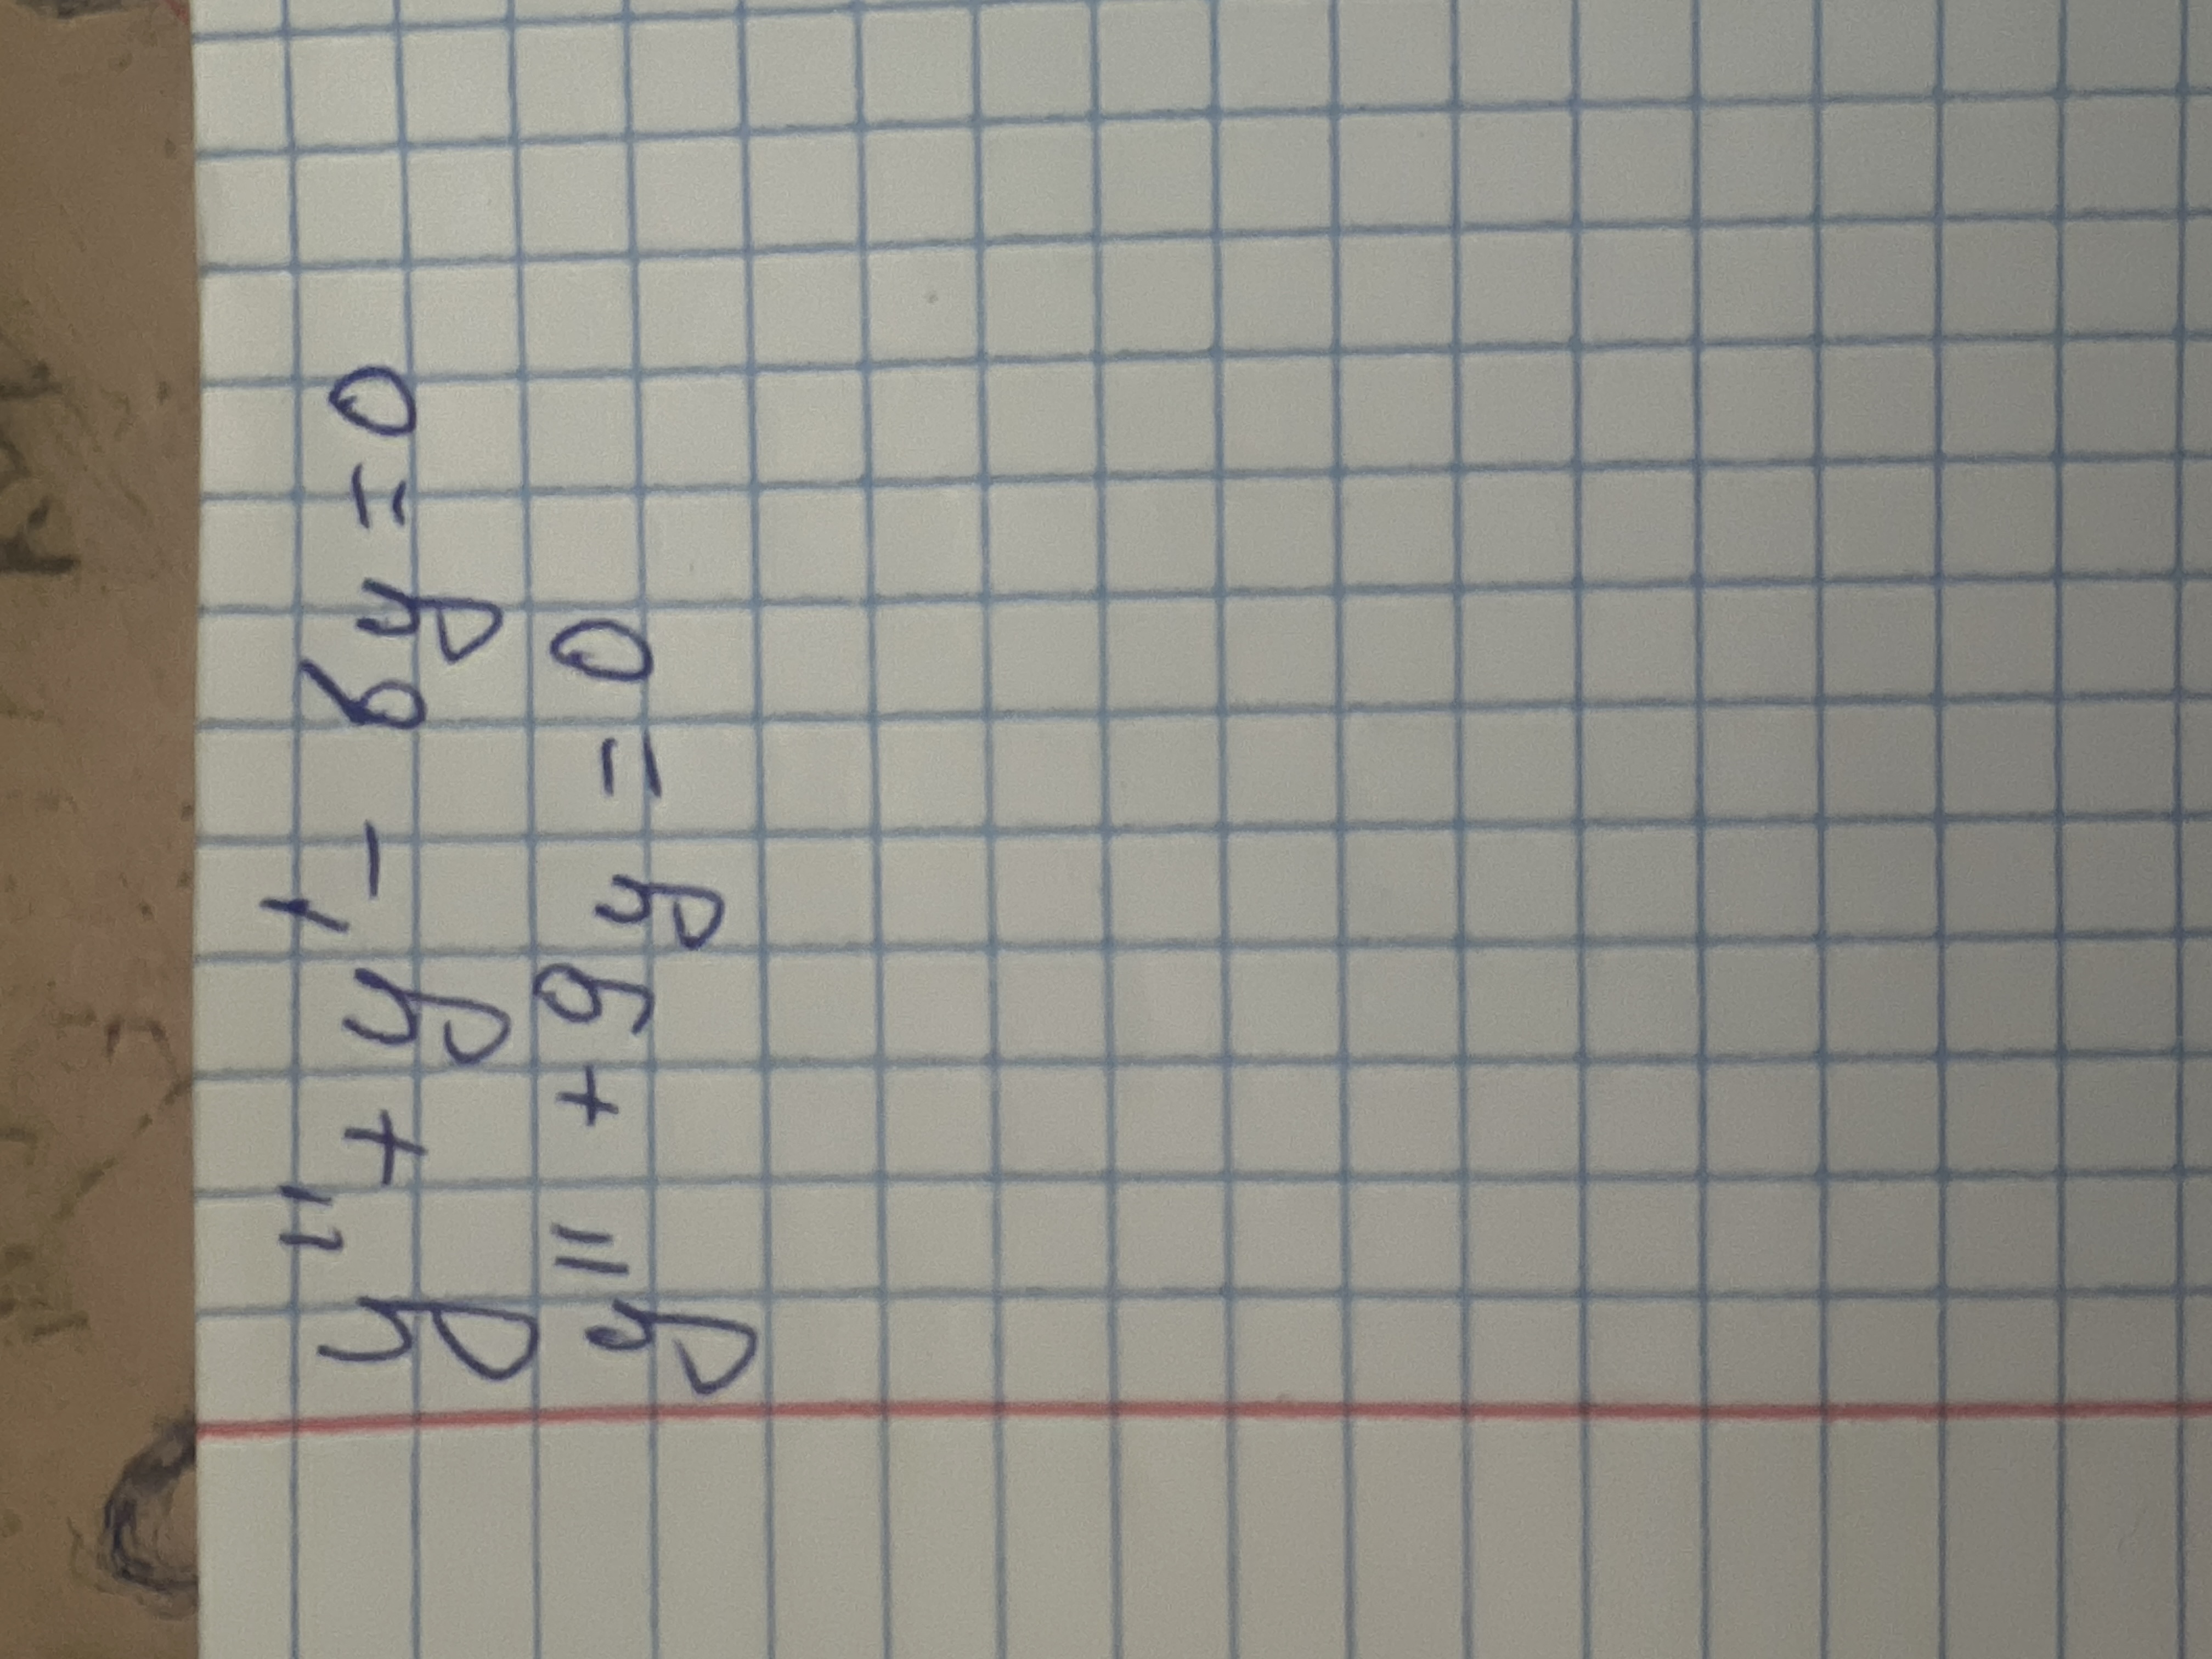 y'' + y' - 6y = 0
y'' + 9y = 0